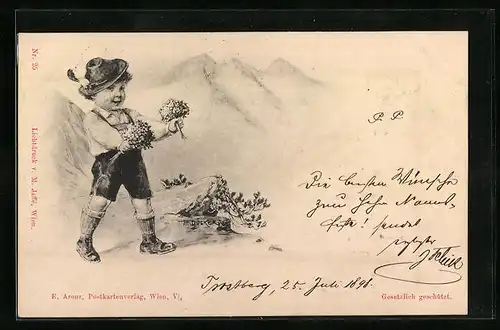 Nr. 25
Lichtdruck v. M. Jaffé, Wien.
P P
Die besten Wünsche
zum hohn Namens-
feste! sendet
Trostberg, 25. Juli 1898.
E. Arenz, Postkartenverlag, Wien, V/1
Gesetzlich geschützt.